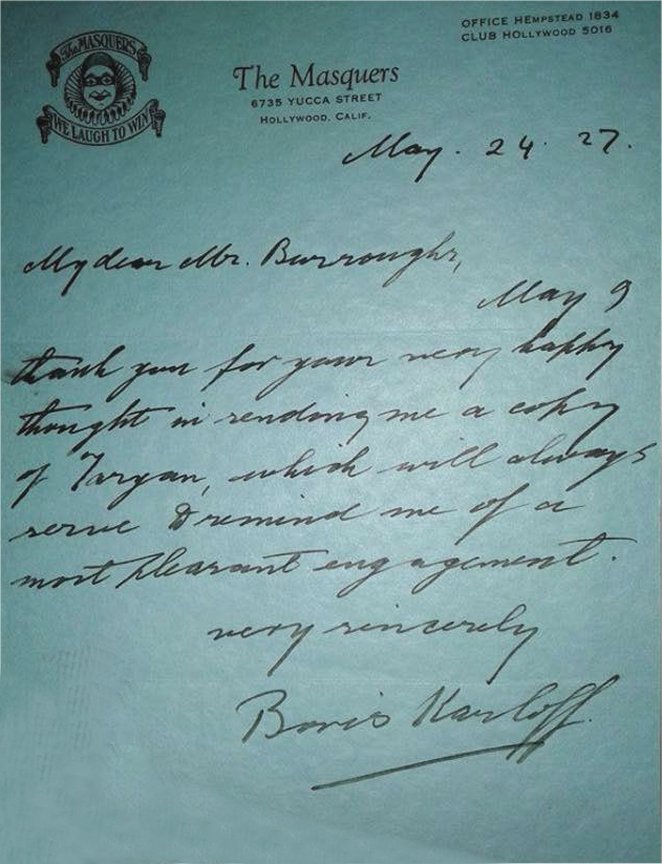 OFFICE HEMPSTEAD 1834
CLUB HOLLYWOOD 5016
The MASQUERS
WE LAUGH TO WIN
The Masquers
6735 YUCCA STREET
HOLLYWOOD, CALIF.
May. 24. 27.
My dear Mr. Burroughs,
May I
thank you for your very happy
thought in sending me a copy
of Tarzan, which will always
serve to remind me of a
most pleasant engagement.
very sincerely
Boris Karloff.